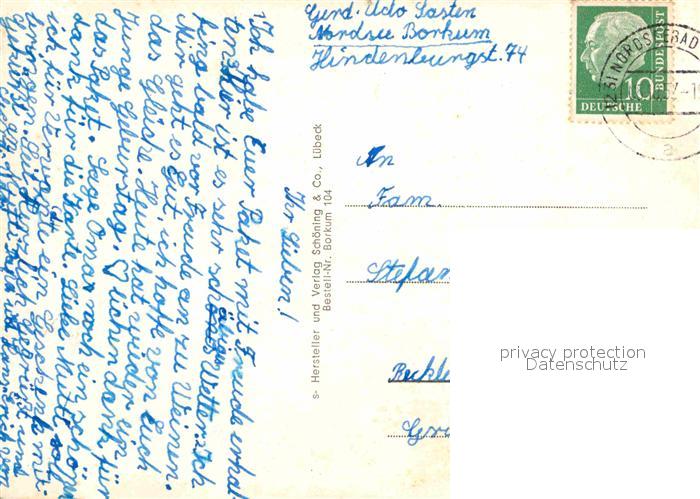 Gerd-Udo Sasten
Nordsee Borkum
Hindenburgst. 74
BUNDESPOST
10
DEUTSCHE
NORDSEEBAD
a
An
Fam.
Stefan
Reckl
Privacy protection
Datenschutz
s- Hersteller und Verlag Schöning & Co., Lübeck
Bestell-Nr. Borkum 104
Ihr Lieben!
Ich hoffe Euer Paket mit Freude erhal
ten. Hier ist es sehr schönes Wetter. Ich
fing bald vor Freude an zu Weinen.
Mir geht es gut, ich hoffe von Euch
das Gleiche. Heute hat wieder ein
Junge Geburtstag. Vielen dank für
das Paket. Sage Oma noch ein schön
dank für die Karte. Liebe Mutti soll
ich für ein Geschenk mit-
bringen.